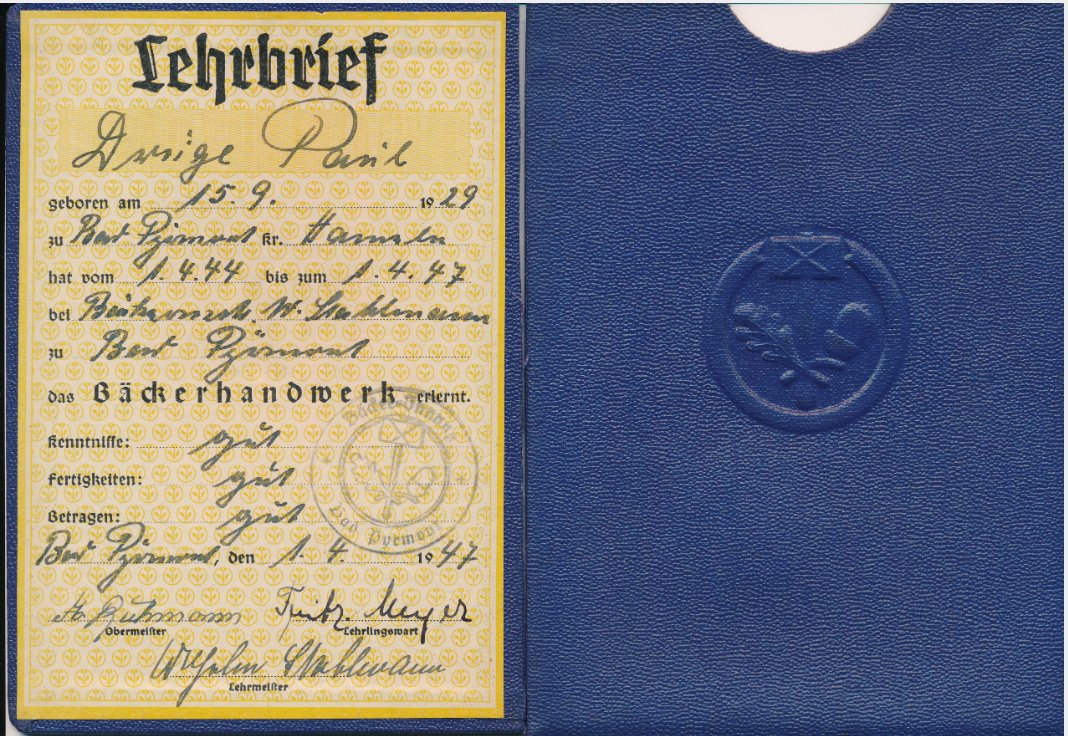 Lehrbrief
Dreige Paul
geboren am 15. 9. 1929
zu Bad Pyrmont Kr. Hameln
hat vom 1.4.44 bis zum 1.4.47
bei W. Stahlmann
zu Bad Pyrmont
das Bäckerhandwerk erlernt.
Kenntnisse: gut
Fertigkeiten: gut
Betragen: gut
Bäcker-Innung
Bad Pyrmont
Bad Pyrmont, den 1. 4. 1947
Fritz Meyer
Obermeister Lehrlingswart
Wilhelm Stahlmann
Lehrmeister